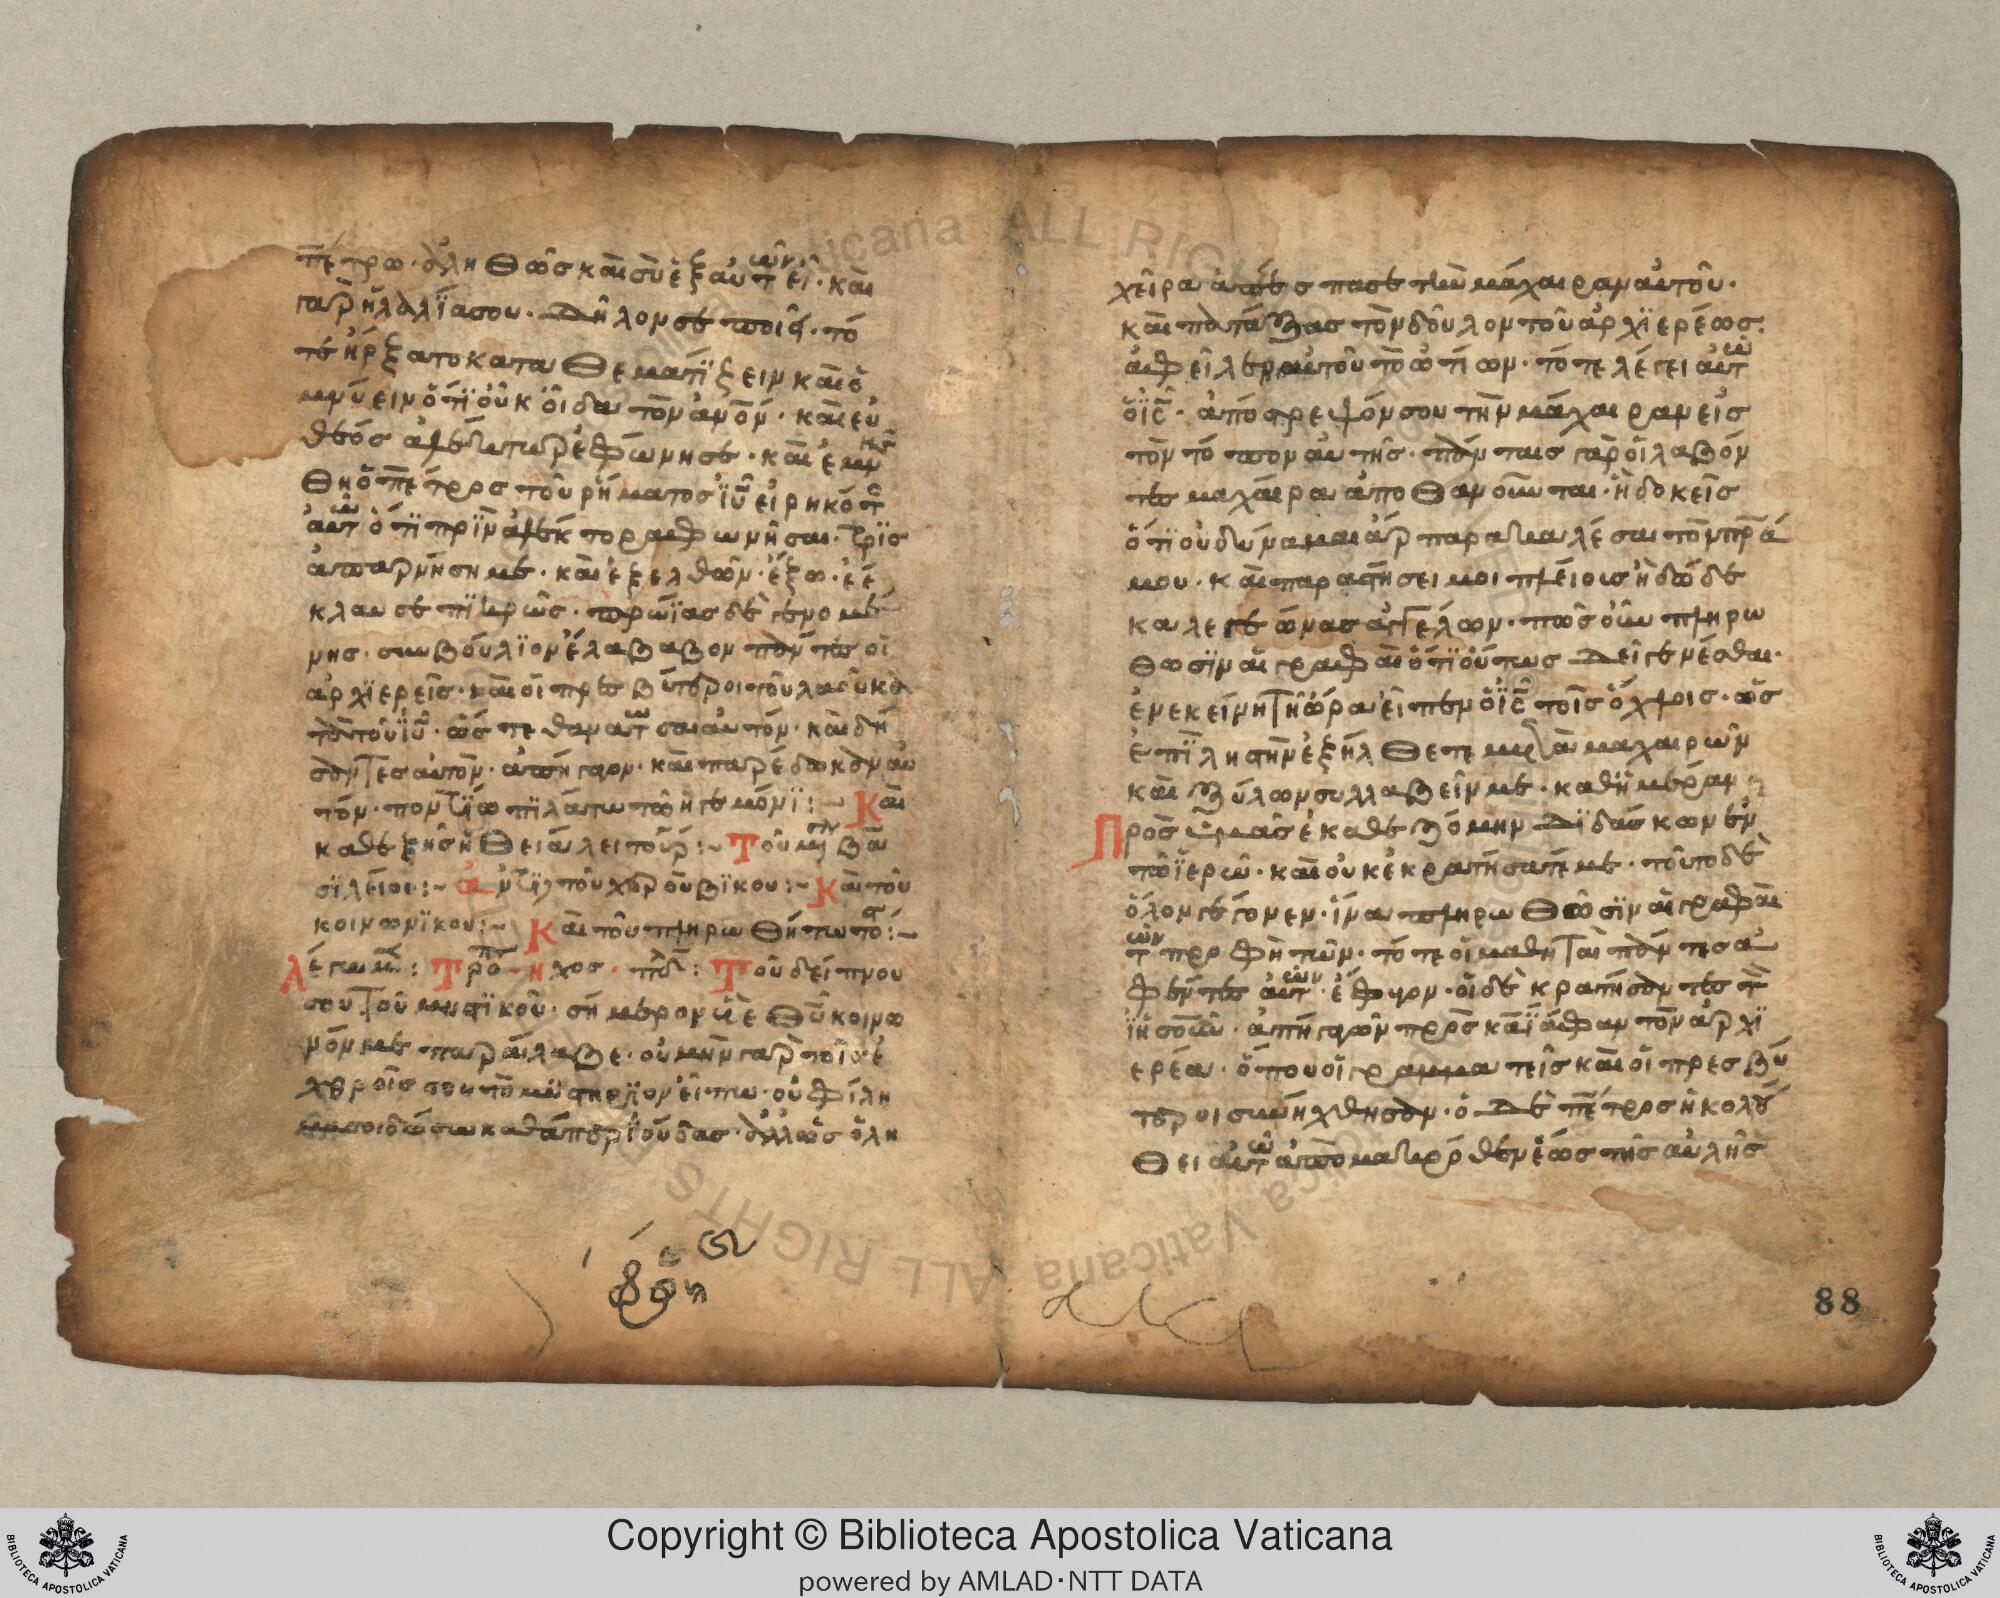 πέτρω· ἀληθῶς καὶ σὺ ἐξ αὐτῶν εἶ· καὶ
γὰρ ἡ λαλϊά σου· δῆλον σε ποιεῖ· τό
τε ἤρξατο καταθεματΐζειν καὶ ὀ
μνύειν ὅτϊ οὐκ οἶδα τὸν ἄνον· καὶ εὐ
θέος ἀλέκτωρ ἐφώνησε· καὶ ἐμνή
θη ὁ πέτρος τοῦ ρήματος ϊῦ εἰρηκότ
αὐτῶ ὅτϊ πρϊν ἀλέκτορα φωνῆσαι· τρὶς
ἀπαρνήση με· καὶ ἐξελθῶν· ἔξω· ἔ
κλαυσε πϊκρῶς· πρωΐας δὲ γενομέ
νης· συνβούλϊον ἔλαβαβον πάντες οἱ
ἀρχϊερεῖς· καὶ οἱ πρεσβύτεροι τοῦ λαοῦ κα
τὰ τοῦ ϊῦ· ὥστε θανατῶσαι αὐτόν· καὶ δή
σαντες αὐτὸν· ἀπήγαγον· καὶ παρέδωκαν αὐ
τόν· ποντΐω πϊλάτω τῶ ἡγεμόνϊ:~ Καὶ
καθεξῆς ἡ θεία λειτουρ:~ Τοῦ μγ βα
σϊλείου:~ ἀντὶ τοῦ χερουβϊκοῦ:~ Καὶ τοῦ
κοινωνϊκοῦ:~ Καὶ τοῦ πληρωθήτω τὸ στ:~
λέγωμεν: Τρο ἦχος· πλ: Τοῦ δείπνου
σου τοῦ μυστϊκοῦ· σήμερον ϋὲ θῦ κοινω
νόν με παράλαβε· οὐ μὴν γὰρ τοῖς ἐ
χθροῖς σου τὸ μυστήρϊον εἴπω· οὐ φίλη
μα σοι δώσω καθάπερ ϊούδας· ἀλλῶς ὅλη
χεῖρα ἀπέσπασε τὴν μάχαιραν αὐτοῦ·
καὶ πατάξας τὸν δοῦλον τοῦ ἀρχϊερέως·
ἀφεῖλεν αὐτοῦ τὸ ὠτίων· τότε λέγει αὐτῶ
ὁ ϊς· ἀπόστρεψόν σου τὴν μάχαιραν εἰς
τὸν τόπον αὐτῆς· πάντες γὰρ οἱ λαβόν
τες μαχαιραν ἀποθανοῦνται· ἢ δοκεῖς
ὅτϊ οὐ δύναμαι ἄρ παρακαλέσαι τὸν πρά
μου· καὶ παραστήσει μοι πλείους ἢ δώδε
κα λεγεῶνας ἀγγέλων· πῶς οὖν πληρω
θωσϊν αἱ γραφαὶ ὅτϊ οὕτως δεῖ γενέσθαι·
ἐν ἐκείνη τῆ ὥρα εἶπεν ὁ ϊς τοῖς ὄχλοις· ὡς
ἐπϊ ληστὴν ἐξήλθετε μετὰ μαχαιρῶν
καὶ ξύλων συλλαβεῖν με· καθημέραν
Πρὸς ὑμᾶς ἐκαθεζόμην δϊδάσκων ἐν
τῶ ϊερῶ· καὶ οὐκ ἐκρατήσατέ με· τοῦτο δὲ
ὅλον γέγονεν· ἵνα πληρωθῶσϊν αἱ γραφαὶ
τῶν προφητῶν· τότε οἱ μαθηταὶ πάντες ἀ
φέντες αὐτῶν· ἔφυγον· οἱ δὲ κρατήσαντες τ
ϊησοῦν· ἀπήγαγον πρὸς καϊάφαν τὸν ἀρχϊ
ερέα· ὅπου οἱ γραμματεῖς καὶ οἱ πρεσβύ
τεροι συνήχθησαν· ὁ δὲ πέτρος ἠκολού
θει αὐτῶ ἀπὸ μακρόθεν ἕως τῆς αὐλῆς
88
Copyright © Biblioteca Apostolica Vaticana
powered by AMLAD·NTT DATA